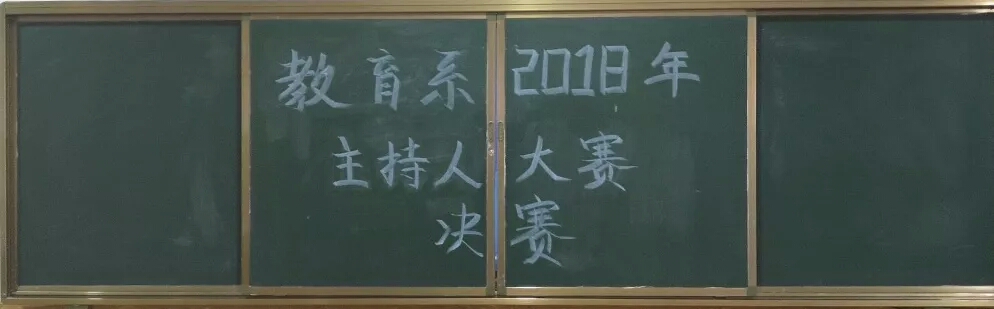 教育系2018年
主持人大赛
决赛